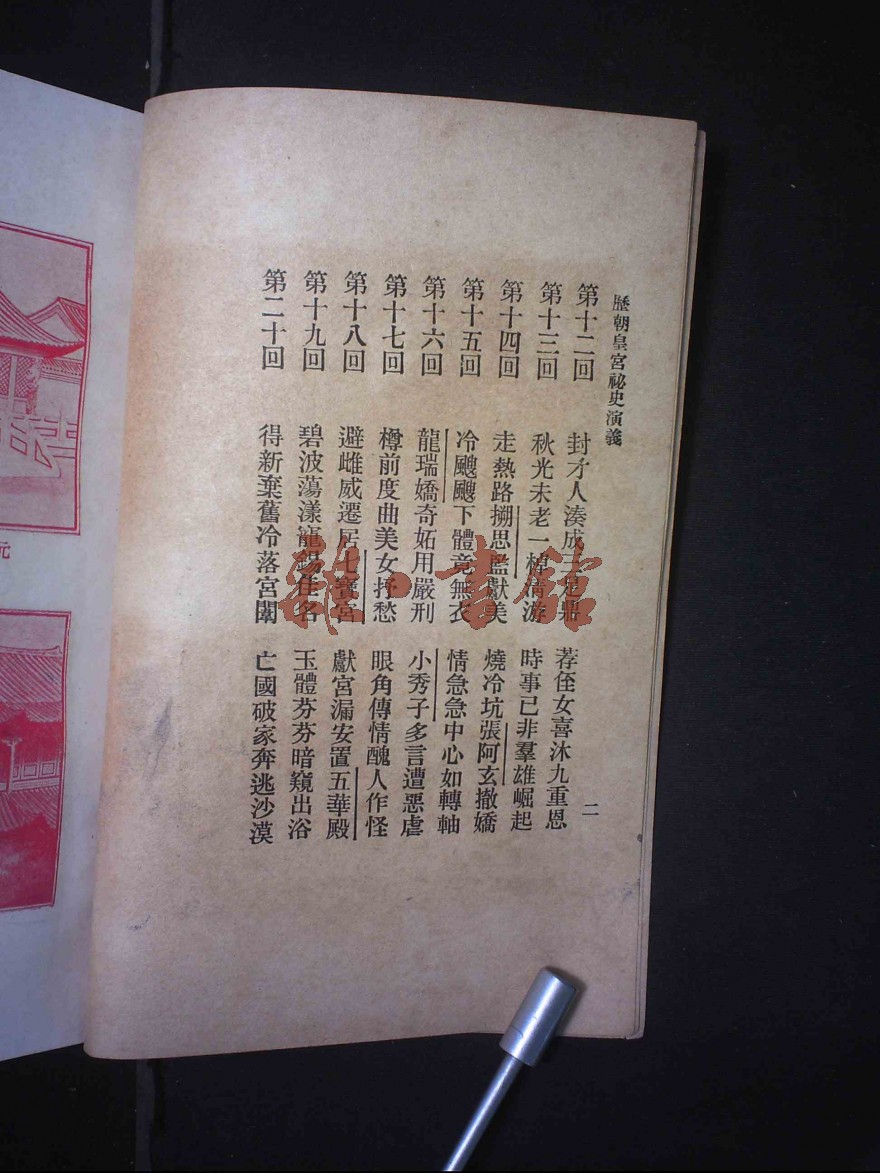 歷朝皇宮祕史演義
二
第十二回 封才人湊成三足鼎 荐侄女喜沐九重恩
第十三回 秋光未老一棹清游 時事已非羣雄崛起
第十四回 走熱路搠思監獻美 燒冷坑張阿玄撤嬌
第十五回 冷颼颼下體竟無衣 情急急中心如轉軸
第十六回 龍瑞嬌奇妬用嚴刑 小秀子多言遭惡虐
第十七回 樽前度曲美女抒愁 眼角傳情醜人作怪
第十八回 避雌威遷居七寶宮 獻宮漏安置五華殿
第十九回 碧波蕩漾寵錫佳名 玉體芬芬暗窺出浴
第二十回 得新棄舊冷落宮闈 亡國破家奔逃沙漠
元